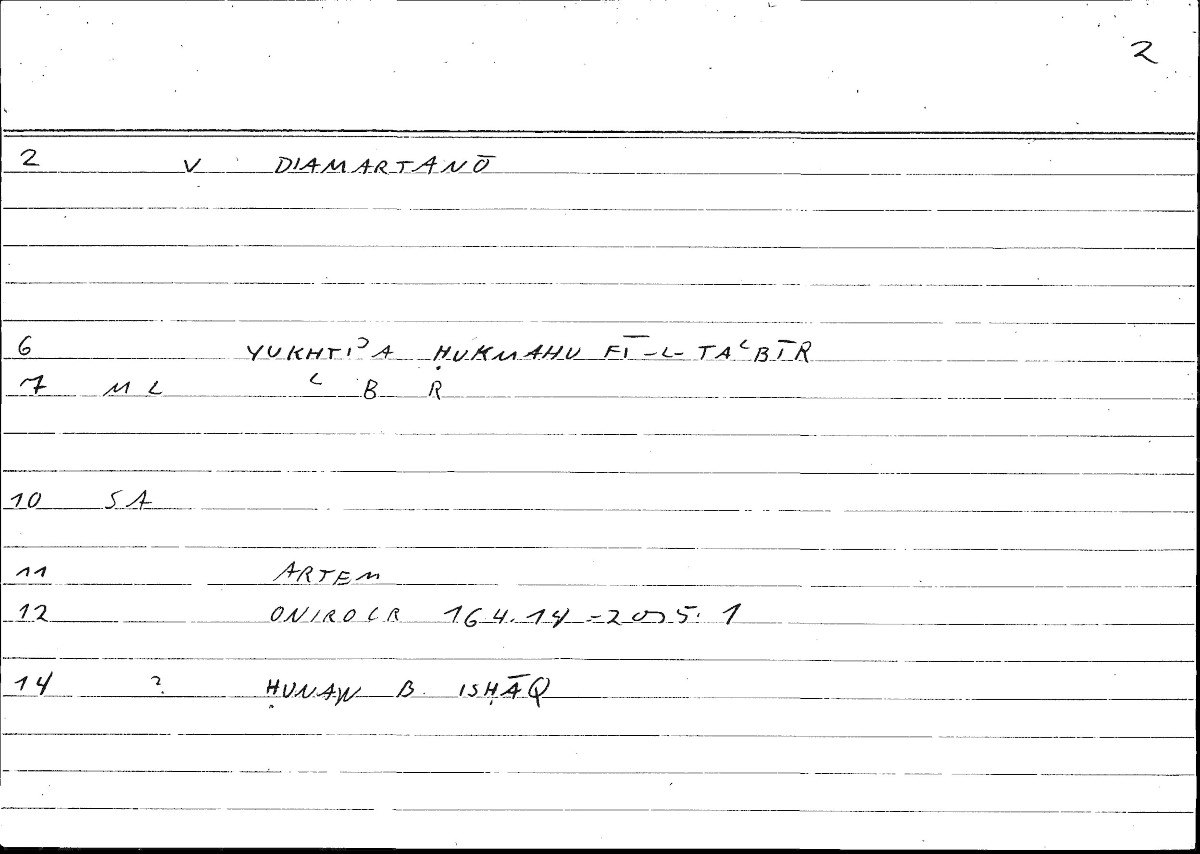 2
2 V DIAMARTANŌ
6 YUKHTIʾA ḤUKMAHU FĪ-L-TAʿBĪR
7 M L ʿ B R
10 S A
11 ARTEM
12 ONIROCR 164.14 = 2
14 ? ḤUNAYN B. ISḤĀQ